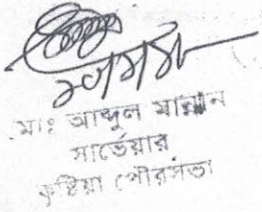 মোঃ আব্দুল মান্নান
সার্ভেয়ার
কুষ্টিয়া পৌরসভা